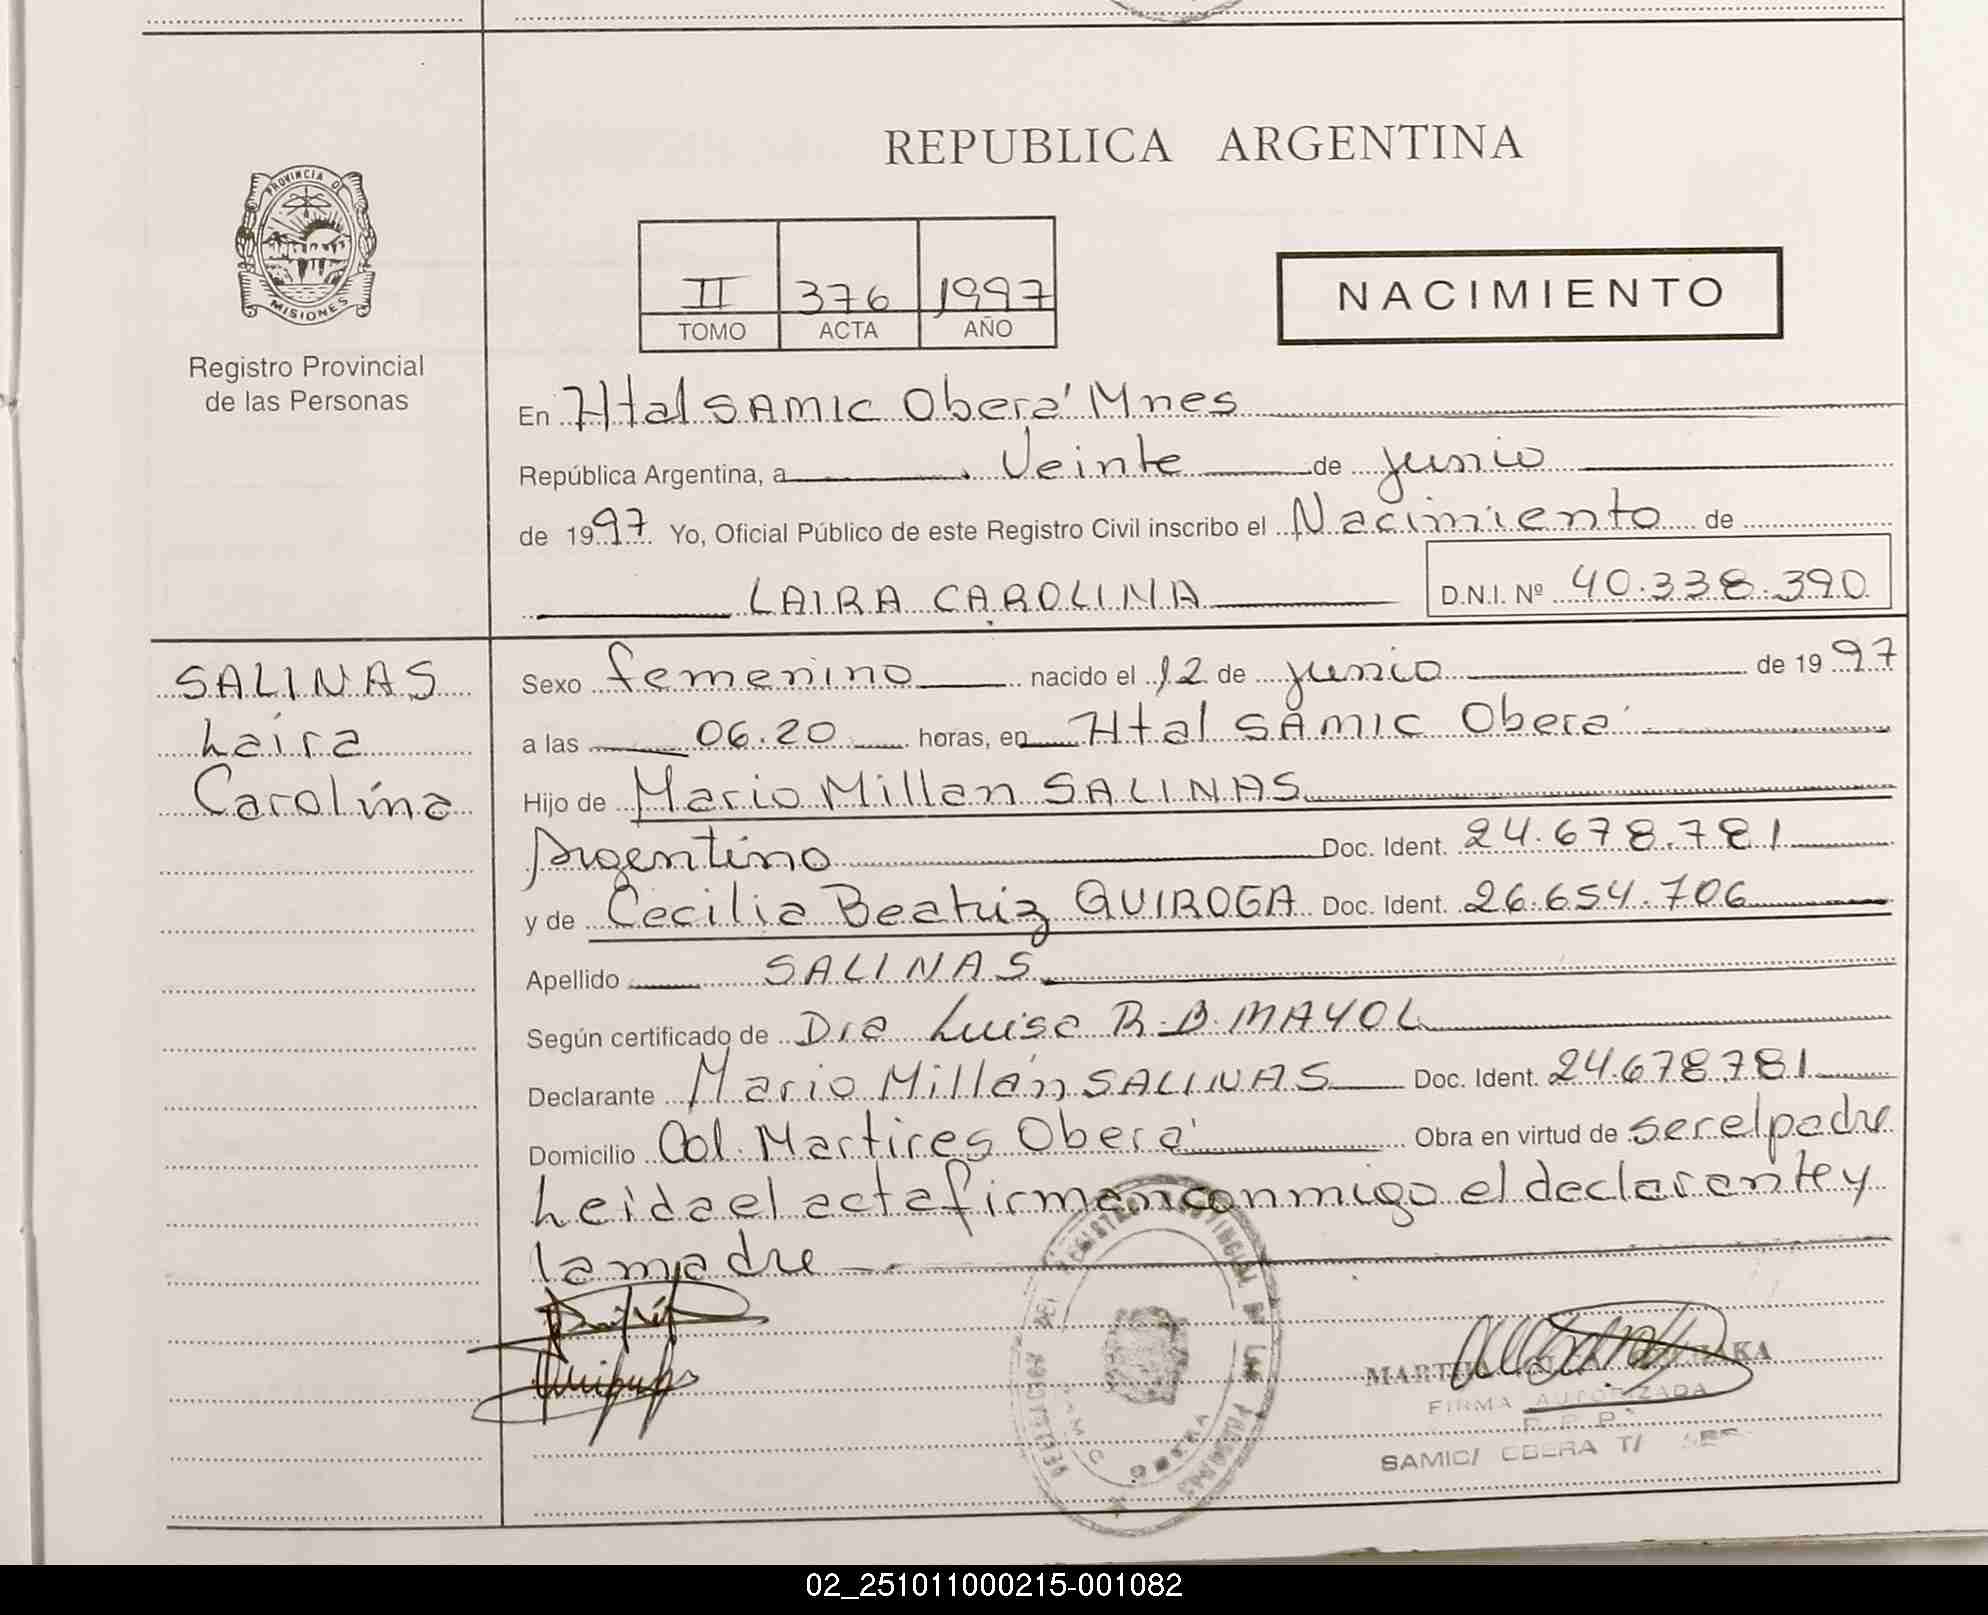 REPUBLICA ARGENTINA
PROVINCIA DE
MISIONES
Registro Provincial
de las Personas
II 376 1997
TOMO ACTA AÑO
NACIMIENTO
En Htal SAMIC Oberá Mnes
República Argentina, a Veinte de junio
de 1997 Yo, Oficial Público de este Registro Civil inscribo el Nacimiento de
LAIRA CAROLINA D.N.I. Nº 40.338.390
SALINAS
Laira
Carolina
Sexo femenino nacido el 12 de junio de 1997
a las 06.20 horas, en Htal SAMIC Oberá
Hijo de Mario Millan SALINAS
Argentino Doc. Ident. 24.678.781
y de Cecilia Beatriz QUIROGA Doc. Ident. 26.654.706
Apellido SALINAS
Según certificado de Dra Luisa R.B. MAYOL
Declarante Mario Millán SALINAS Doc. Ident. 24.678.781
Domicilio Col. Martires Oberá Obra en virtud de ser el padre
Leida el acta firman conmigo el declarante y
la madre
REGISTRO PROVINCIAL DE LAS PERSONAS
MARTHA
FIRMA AUTORIZADA
R. P. P.
SAMIC/ OBERA
02_251011000215-001082